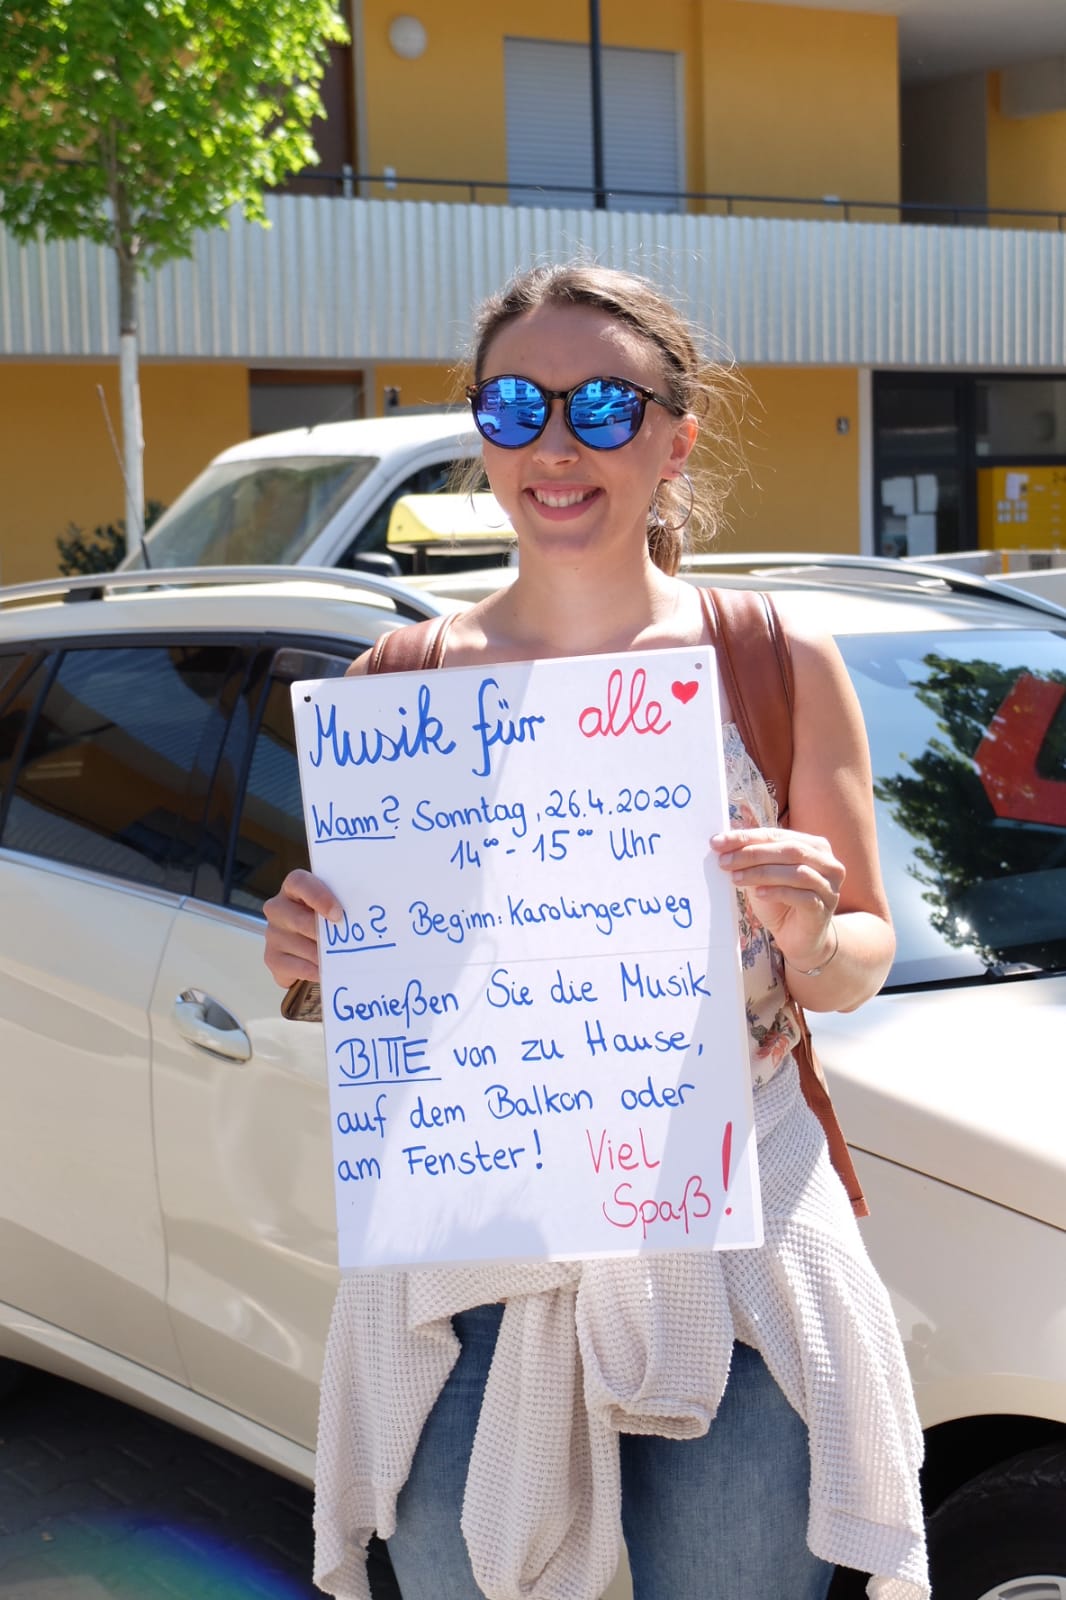 Musik für alle ♥
Wann? Sonntag, 26.4.2020
14⁰⁰ - 15⁰⁰ Uhr
Wo? Beginn: Karolingerweg
Genießen Sie die Musik
BITTE von zu Hause,
auf dem Balkon oder
am Fenster! Viel
Spaß!